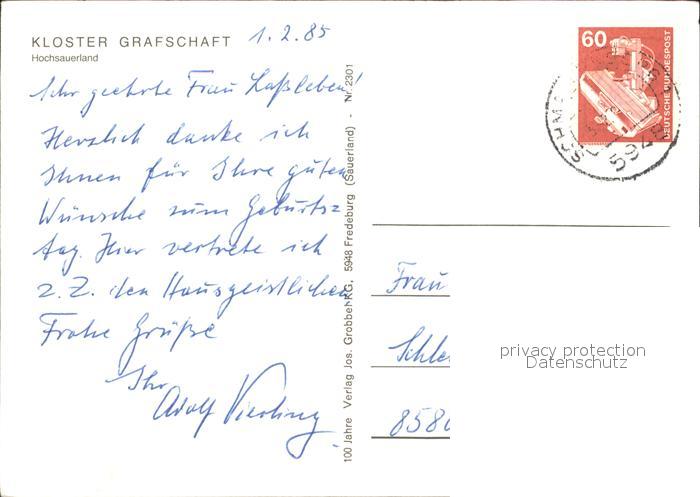 KLOSTER GRAFSCHAFT
Hochsauerland
1.2.85
Sehr geehrte Frau Laßleben!
Herzlich danke ich
Ihnen für Ihre guten
Wünsche zum Geburts=
tag. Hier vertrete ich
z. Z. den Hausgeistlichen
Frohe Grüße
Ihr
Adolf Vierling
100 Jahre Verlag Jos. Grobbel KG, 5948 Fredeburg (Sauerland) - Nr. 2301
60
DEUTSCHE BUNDESPOST
SCHM
5948
Frau
Schle
8580
privacy protection
Datenschutz